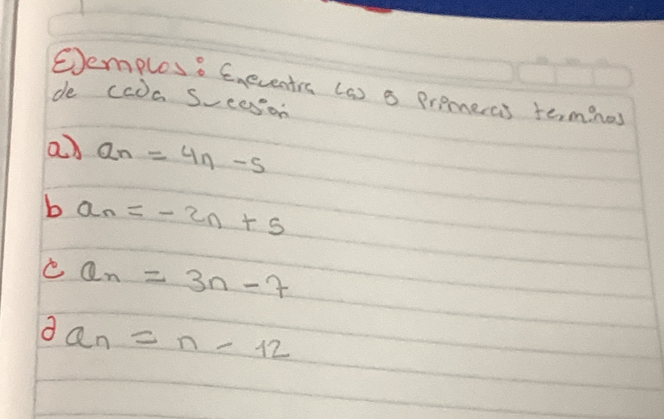 Ejemplos: Encuentra las 5 primeros terminos
de cada sucesión
a) an = 4n - 5
b an = -2n + 5
c an = 3n - 7
d an = n - 12